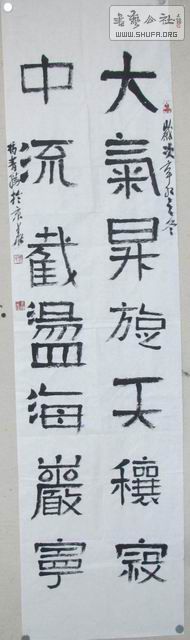 书艺公社
WWW.SHUFA.ORG
歲次辛卯之冬
大氣昇旋天穰寂
中流截盪海巖寧
於京華